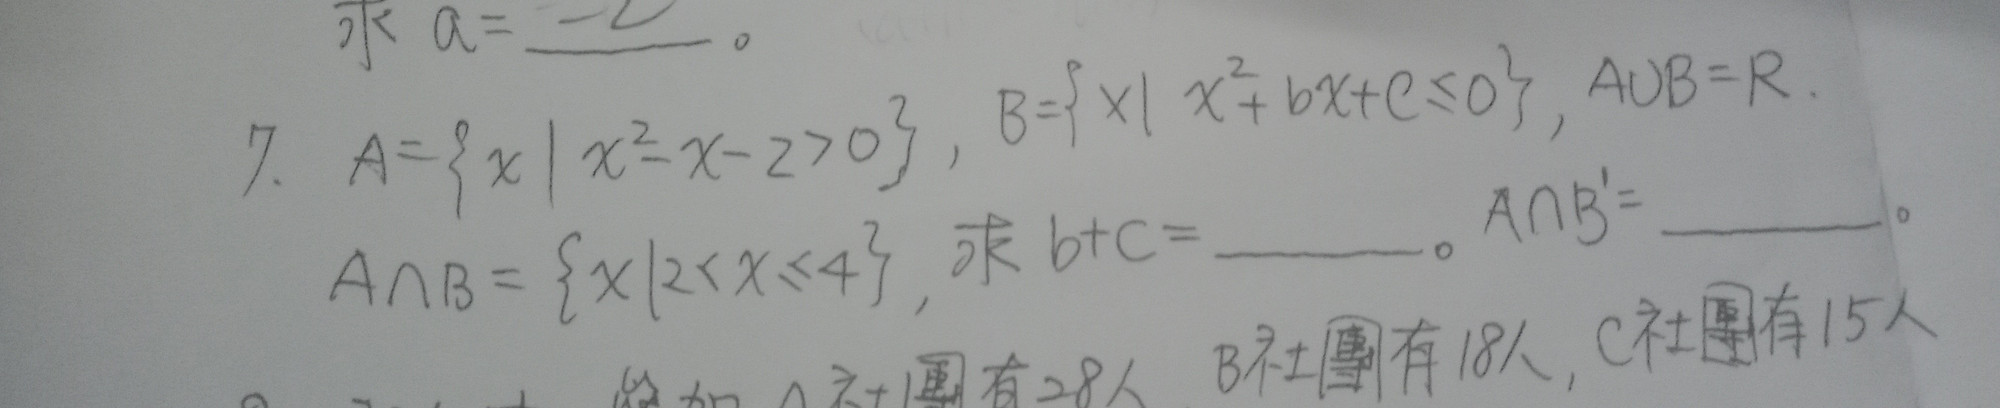 求 a = -2 。
7. A={x | x²-x-2>0}, B={x | x²+bx+c≤0}, A∪B=R.
A∩B={x|2<x≤4}, 求 b+c=______。A∩B'=______。
參加A社團有28人 B社團有18人, C社團有15人